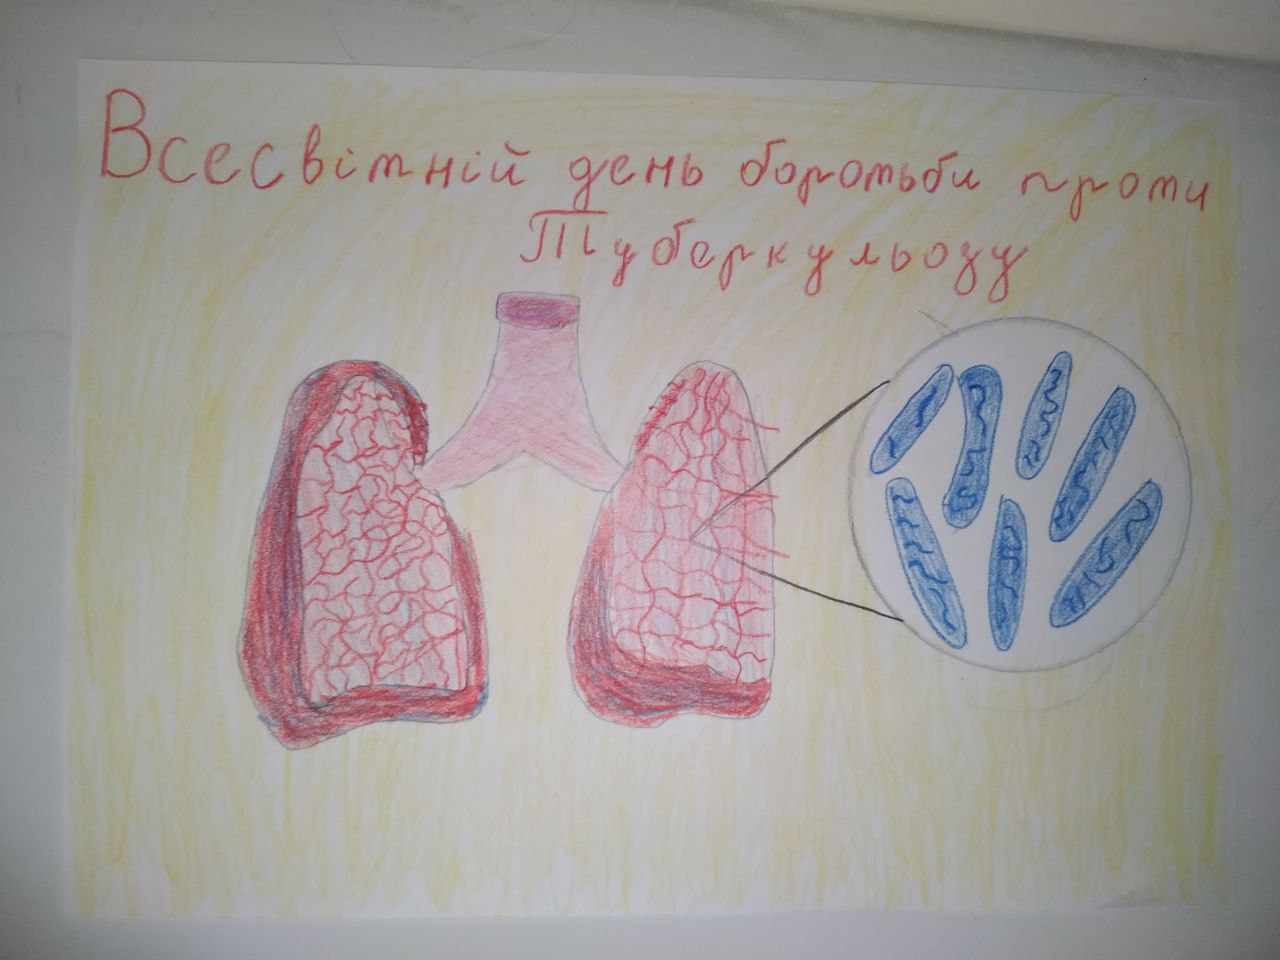 Всесвітній день боротьби проти
Туберкульозу